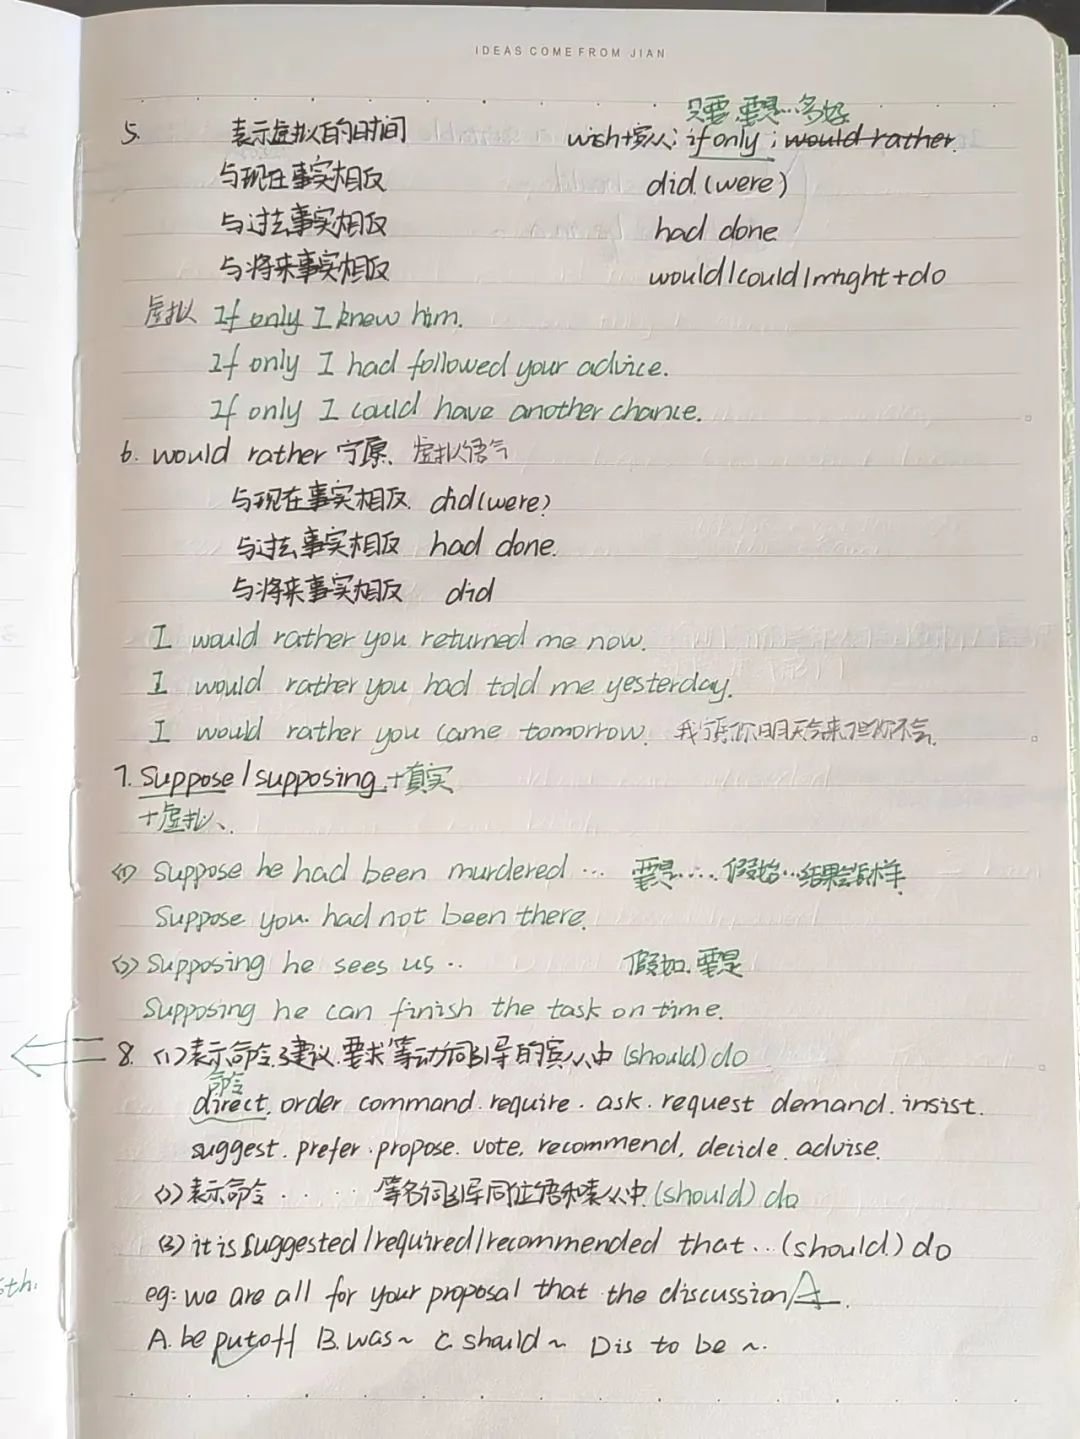 IDEAS COME FROM JIAN
只要,要是…多好
5. 表示虚拟的时间 wish+宾从; if only ; would rather.
与现在事实相反 did.(were)
与过去事实相反 had done
与将来事实相反 would/could/might+do
虚拟 If only I knew him.
If only I had followed your advice.
If only I could have another chance.
6. would rather 宁愿、虚拟语气
与现在事实相反. did(were)
与过去事实相反 had done.
与将来事实相反 did
I would rather you returned me now.
I would rather you had told me yesterday.
I would rather you came tomorrow. 我情你明天会来但你不会.
7. Suppose / supposing +真实
+虚拟、
(1) Suppose he had been murdered … 要是…. 假如…结果会怎样
Suppose you had not been there.
(2) Supposing he sees us .. 假如.要是
Supposing he can finish the task on time.
8. (1)表示命令.建议.要求等动词引导的宾从中 (should) do
命令
direct. order command. require. ask. request demand. insist.
suggest. prefer. propose. vote. recommend, decide. advise.
(2)表示命令 . . . . . 等名词引导同位语和表从中.(should) do
(3) it is suggested/required/recommended that…(should) do
eg: we are all for your proposal that the discussion A.
A. be put off B. was~ C. should ~ D is to be ~.
5th.